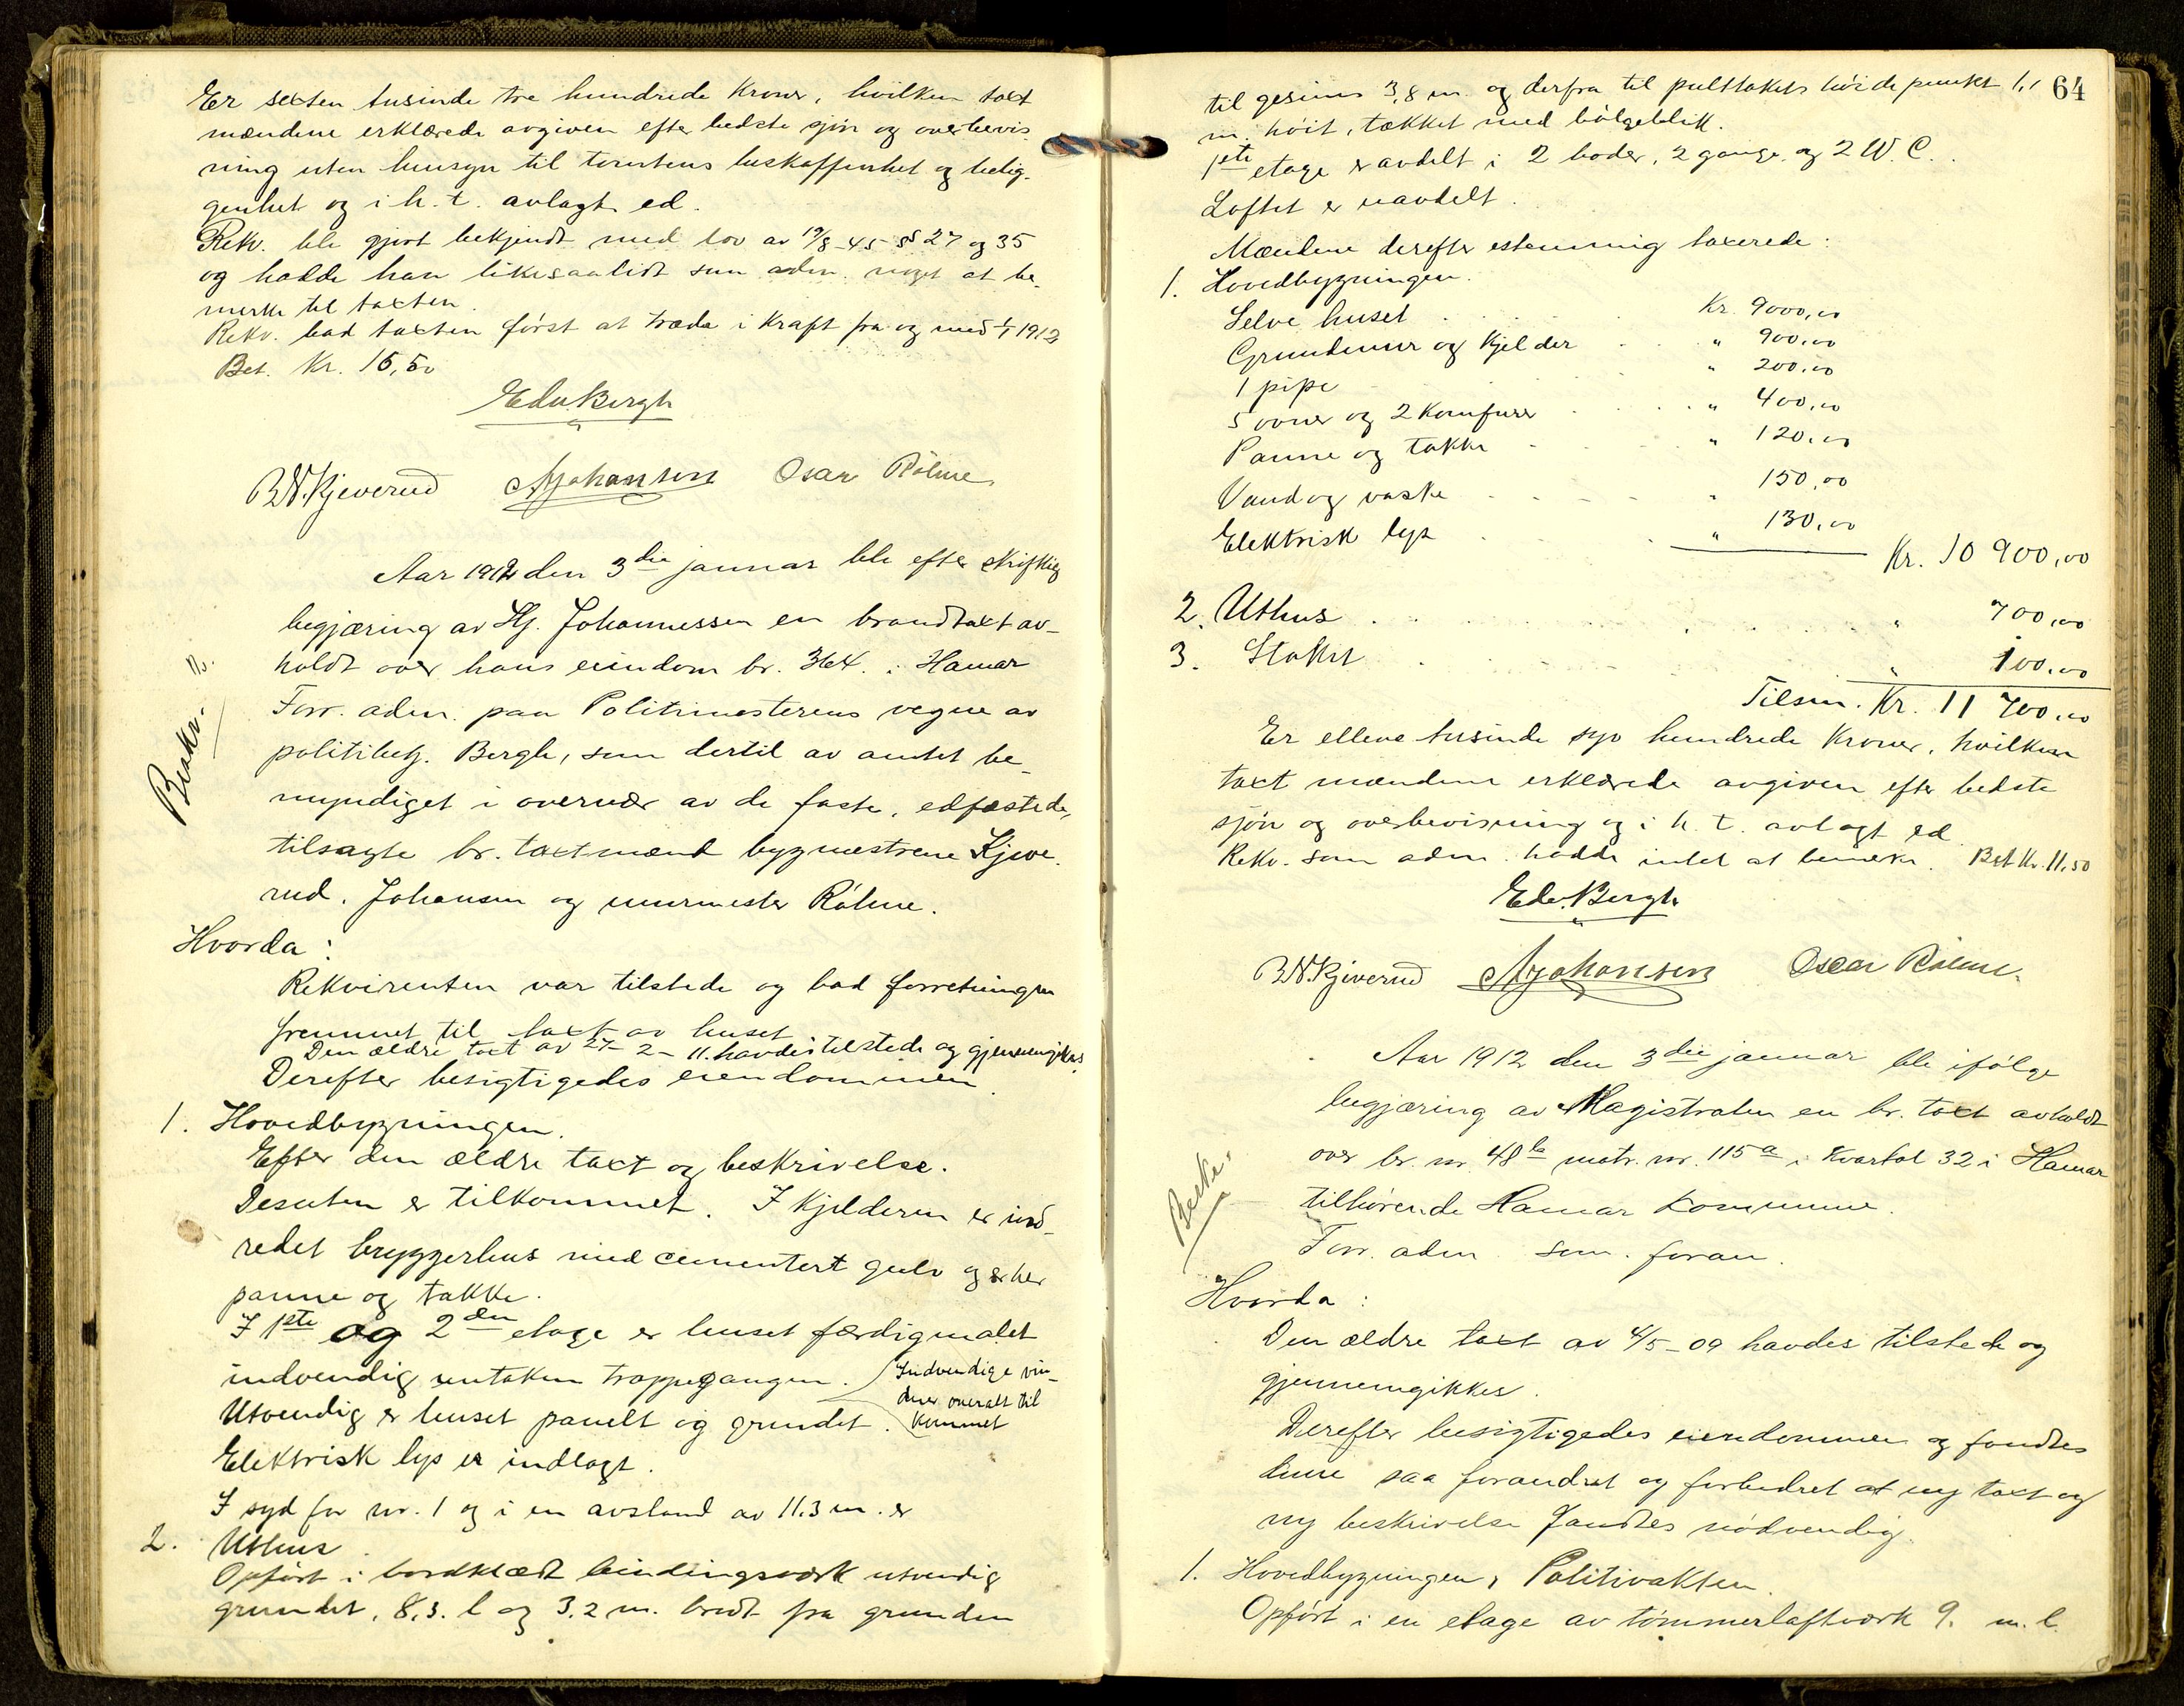 Er sexten tusinde tre hundrede kroner, hvilken taxt
mændene erklærede avgiven efter bedste sjøn og overbevis
ning uten hensyn til tomtens beskaffenhet og belig-
genhet og i h. t. avlagt ed.
Rekv. ble gjort bekjendt med lov av 19/8-45 §§ 27 og 35
og hadde han likesaalidt som adm. noget at be-
merke til taxten.
Rekv. bad taxten først at træde i kraft fra og med 1/1 1912
Bet. Kr. 15,50
Edv. Bergh
B.N. Kjeverud AJohansen Oscar Rølme
Beskr. No.
Aar 1912 den 3die januar ble efter skriftlig
begjæring av Hj. Johannessen en brandtaxt av-
holdt over hans eiendom br. 364. i Hamar
Forr. adm. paa Politimesterens vegne av
politibetj. Bergh, som dertil av amtet be-
myndiget i overvær av de faste, edfæstede,
tilsagte br. taxtmænd bygmestrene Kjeve-
rud, Johansen og murmester Rølme.
Hvorda:
Rekvirenten var tilstede og bad forretningen
fremmet til taxt av huset.
Den ældre taxt av 27-2-11. havdes tilstede og gjennemgikkes.
Derefter besigtigedes eiendommen
1. Hovedbygningen.
Efter den ældre taxt og beskrivelse.
Desuten er tilkommet. I kjelderen er ind-
redet bryggerhus med cementert gulv og er her
panne og takke.
I 1ste og 2den etage er huset færdigmalet
indvendig untaken trappegangen. Indvendige vin-
duer overalt til
kommet
Utvendig er huset panelt og grundet.
Elektrisk lys er indlagt.
I syd for nr. 1 og i en avstand av 11.3 m. er
2. Uthus.
Opført i bordklædt bindingsværk utvendig
grundet, 8,3. l og 3,2 m. bredt fra grunden
64
til gesims 3,8 m. og derfra til pulttakets høidepunkt 1,1
m. høit, tækket med bølgeblik.
1ste etage er avdelt i 2 boder, 2 gange, og 2 W.C.
Loftet er uavdelt.
Mændene derefter enstemmig taxerede:
1. Hovedbygningen.
Selve huset . . Kr. 9000,00
Grundmur og kjelder . . . " 900,00
1 pipe " 200,00
5 ovner og 2 komfurer . . . . " 400,00
Panne og takke . . . " 120,00
Vand og vaske . . . . " 150,00
Elektrisk lys . . . " 130,00
Kr. 10 900,00
2. Uthus . . . . " 700,00
3. Stakit . . . . " 100,00
Tilsm. Kr. 11 700,00
Er elleve tusinde syv hundrede kroner, hvilken
taxt mændene erklærede avgiven efter bedste
sjøn og overbevisning og i h. t. avlagt ed.
Rekv. som adm. hadde intet at bemerke. Bet Kr. 11,50
Edv. Bergh
B.N. Kjeverud AJohansen Oscar Rølme.
Beskr.
Aar 1912 den 3die januar ble ifølge
begjæring av Magistraten en br. taxt avholdt
over br. nr. 48b matr. nr. 115a i kvartal 32 i Hamar
tilhørende Hamar kommune.
Forr. adm. som foran.
Hvorda:
Den ældre taxt av 4/5-09 havdes tilstede og
gjennemgikkes.
Derefter besigtigedes eiendommen og fandtes
denne saa forandret og forbedret at ny taxt og
ny beskrivelse fandtes nødvendig.
1. Hovedbygningen, Politivakten.
Opført i en etage av tømmerlaftverk 9. m. l.